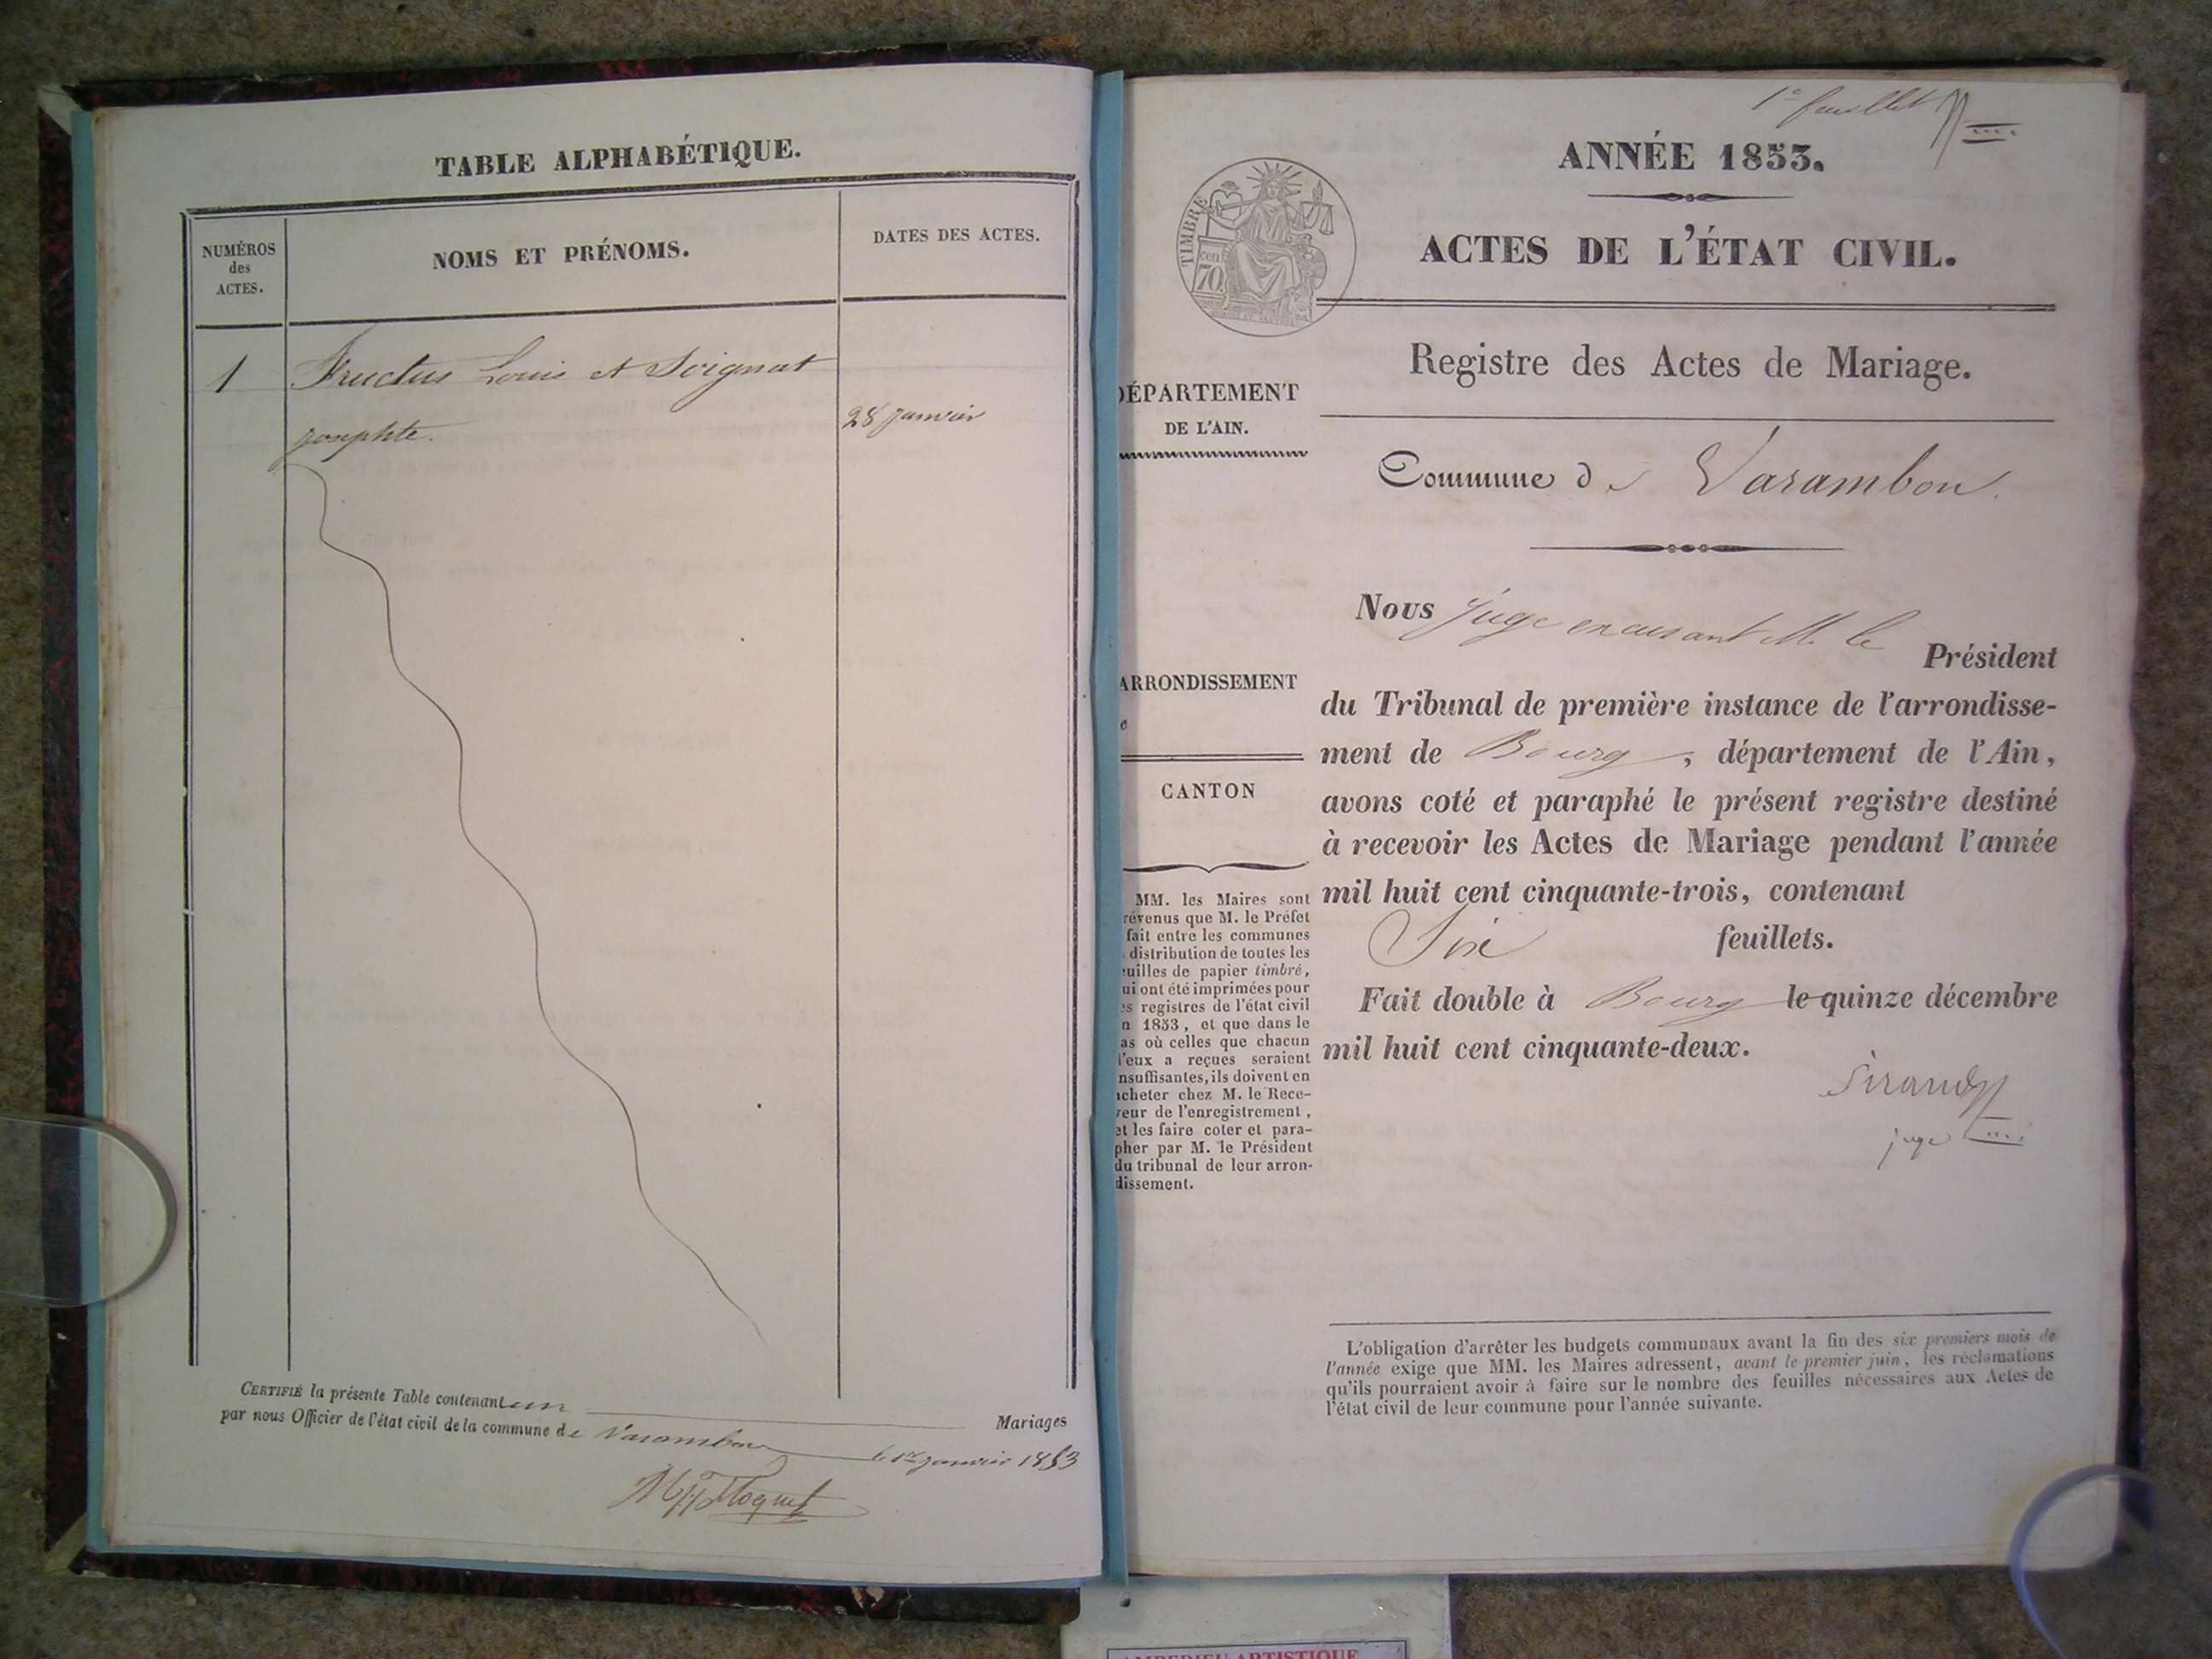 TABLE ALPHABÉTIQUE.
NUMÉROS
des
ACTES.
NOMS ET PRÉNOMS.
DATES DES ACTES.
1
Fructus Louis et Soignat
josephte.
28 janvier
CERTIFIÉ la présente Table contenant un
Mariages
par nous Officier de l'état civil de la commune de Varambon
le 1er janvier 1853
1er feuillet
ANNÉE 1853.
TIMBRE
cen
70
ACTES DE L'ÉTAT CIVIL.
Registre des Actes de Mariage.
DÉPARTEMENT
DE L'AIN.
Commune de Varambon.
ARRONDISSEMENT
e
CANTON
MM. les Maires sont
révenus que M. le Préfet
fait entre les communes
distribution de toutes les
uilles de papier timbré,
ui ont été imprimées pour
es registres de l'état civil
n 1853, et que dans le
as où celles que chacun
d'eux a reçues seraient
nsuffisantes, ils doivent en
acheter chez M. le Rece-
veur de l'enregistrement,
et les faire coter et para-
pher par M. le Président
du tribunal de leur arron-
dissement.
Nous Juge encusant M. le
Président
du Tribunal de première instance de l'arrondisse-
ment de Bourg, département de l'Ain,
avons coté et paraphé le présent registre destiné
à recevoir les Actes de Mariage pendant l'année
mil huit cent cinquante-trois, contenant
Six feuillets.
Fait double à Bourg le quinze décembre
mil huit cent cinquante-deux.
Sirand
juge
L'obligation d'arrêter les budgets communaux avant la fin des six premiers mois de
l'année exige que MM. les Maires adressent, avant le premier juin, les réclamations
qu'ils pourraient avoir à faire sur le nombre des feuilles nécessaires aux Actes de
l'état civil de leur commune pour l'année suivante.
AMBERIEU ARTISTIQUE